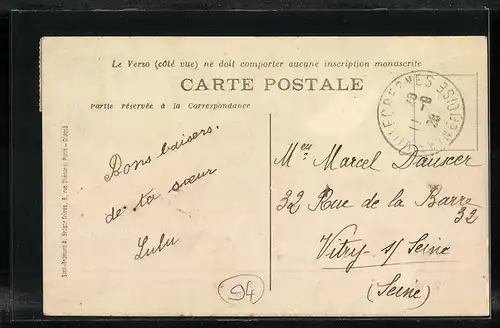 Le Verso (côté vue) ne doit comporter aucune inscription manuscrite
CARTE POSTALE
Partie réservée à la Correspondance
Bons baisers.
de ta sœur
Lulu
Marcel
32 Rue de la Barre
32
Vitry s/ Seine
(Seine)
94